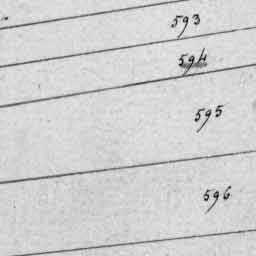 593
594
595
596